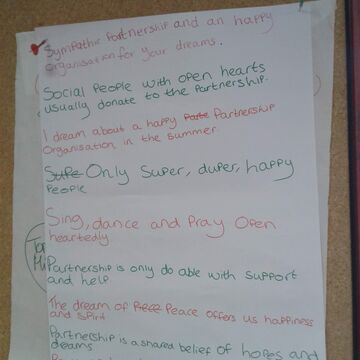 Sympathic Partnership and an happy
organisation for your dreams.
Social People with open hearts
usually donate to the Partnership.
I dream about a happy Parte Partnership
Organisation in the summer
Supe Only Super, duper, happy
People
Sing, dance and Pray Open
heartedly
Partnership is only do able with support
and help
The dream of Peace offers us happiness
and Spirit
Partnership is a shared belief of hopes and
dreams